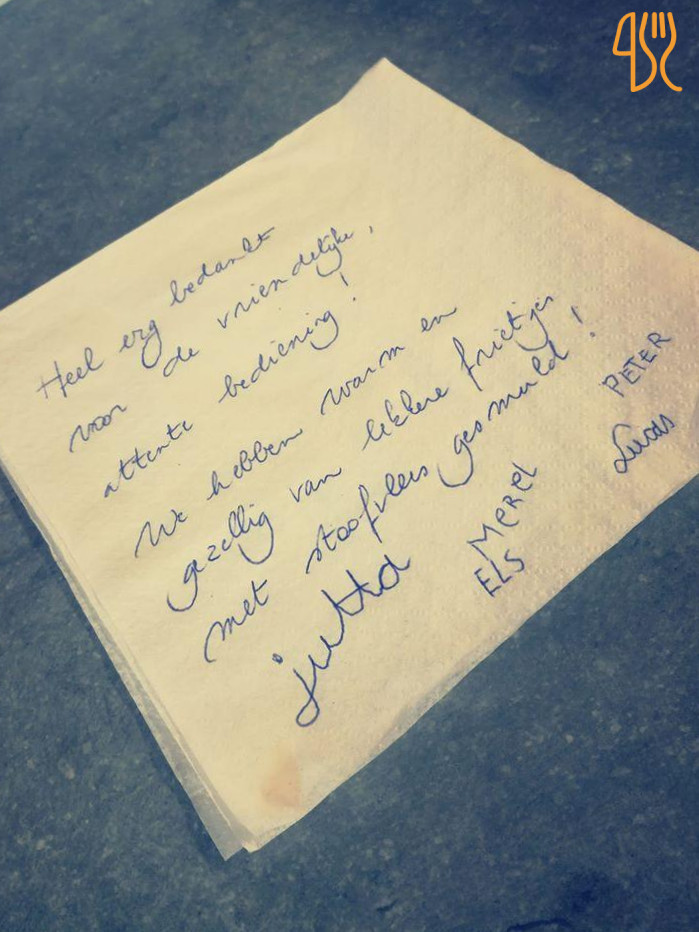 Heel erg bedankt
voor de vriendelijke,
attente bediening!
We hebben warm en
gezellig van lekkere frietjes
met stoofvlees gesmuld!
jutta
MEREL
ELS
PETER
Lucas